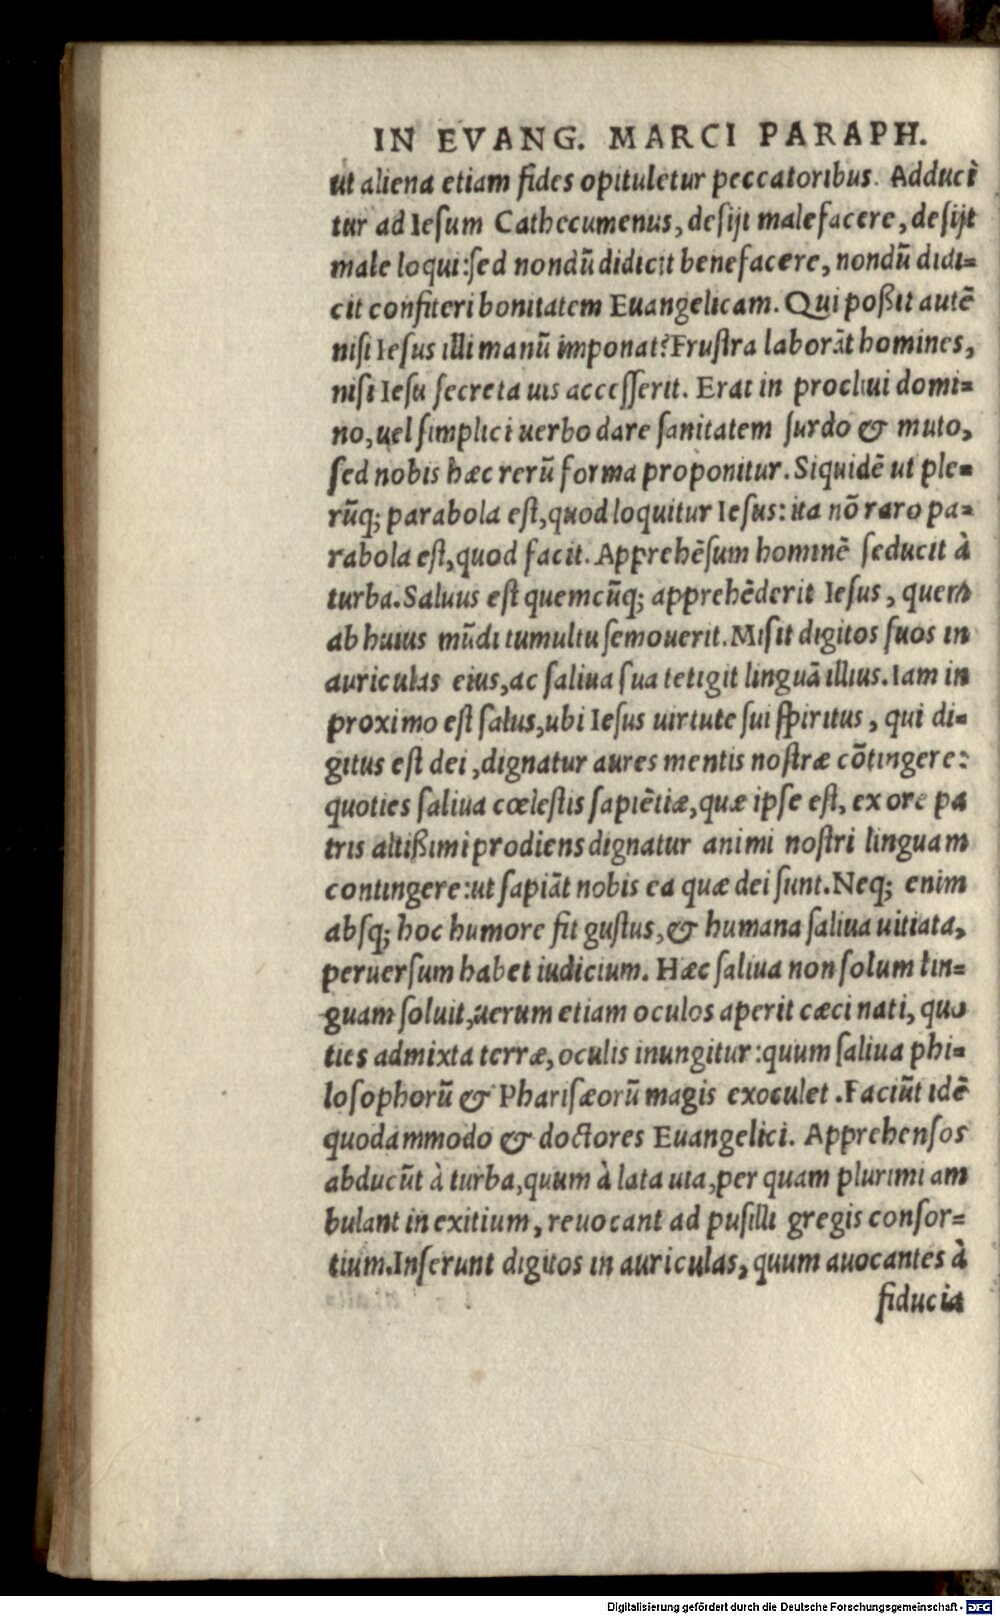 IN EVANG. MARCI PARAPH.
ut aliena etiam fides opituletur peccatoribus. Adducĩ
tur ad Iesum Cathecumenus, desijt malefacere, desijt
male loqui: sed nondũ didicit benefacere, nondũ didi=
cit confiteri bonitatem Euangelicam. Qui poßit autẽ
nisi Iesus illi manũ imponat? Frustra laborãt homines,
nisi Iesu secreta uis accesserit. Erat in procliui domi=
no, uel simplici uerbo dare sanitatem surdo & muto,
sed nobis hæc rerũ forma proponitur. Siquidẽ ut ple=
rũq; parabola est, quod loquitur Iesus: ita nõ raro pa=
rabola est, quod facit. Apprehẽsum hominẽ seducit à
turba. Saluus est quemcũq; apprehẽderit Iesus, quem
ab huius mũdi tumultu semouerit. Misit digitos suos in
auriculas eius, ac saliua sua tetigit linguã illius. Iam in
proximo est salus, ubi Iesus uirtute sui spiritus, qui di=
gitus est dei, dignatur aures mentis nostræ cõtingere:
quoties saliua cœlestis sapiẽtiæ, quæ ipse est, ex ore pa
tris altißimi prodiens dignatur animi nostri linguam
contingere: ut sapiãt nobis ea quæ dei sunt. Neq; enim
absq; hoc humore fit gustus, & humana saliua uitiata,
peruersum habet iudicium. Hæc saliua non solum lin=
guam soluit, uerum etiam oculos aperit cæci nati, quo
ties admixta terræ, oculis inungitur: quum saliua phi=
losophorũ & Pharisæorũ magis exoculet. Faciũt idẽ
quodammodo & doctores Euangelici. Apprehensos
abducũt à turba, quum à lata uia, per quam plurimi am
bulant in exitium, reuocant ad pusilli gregis consor=
tium. Inserunt digitos in auriculas, quum auocantes à
fiducia
Digitalisierung gefördert durch die Deutsche Forschungsgemeinschaft - DFG